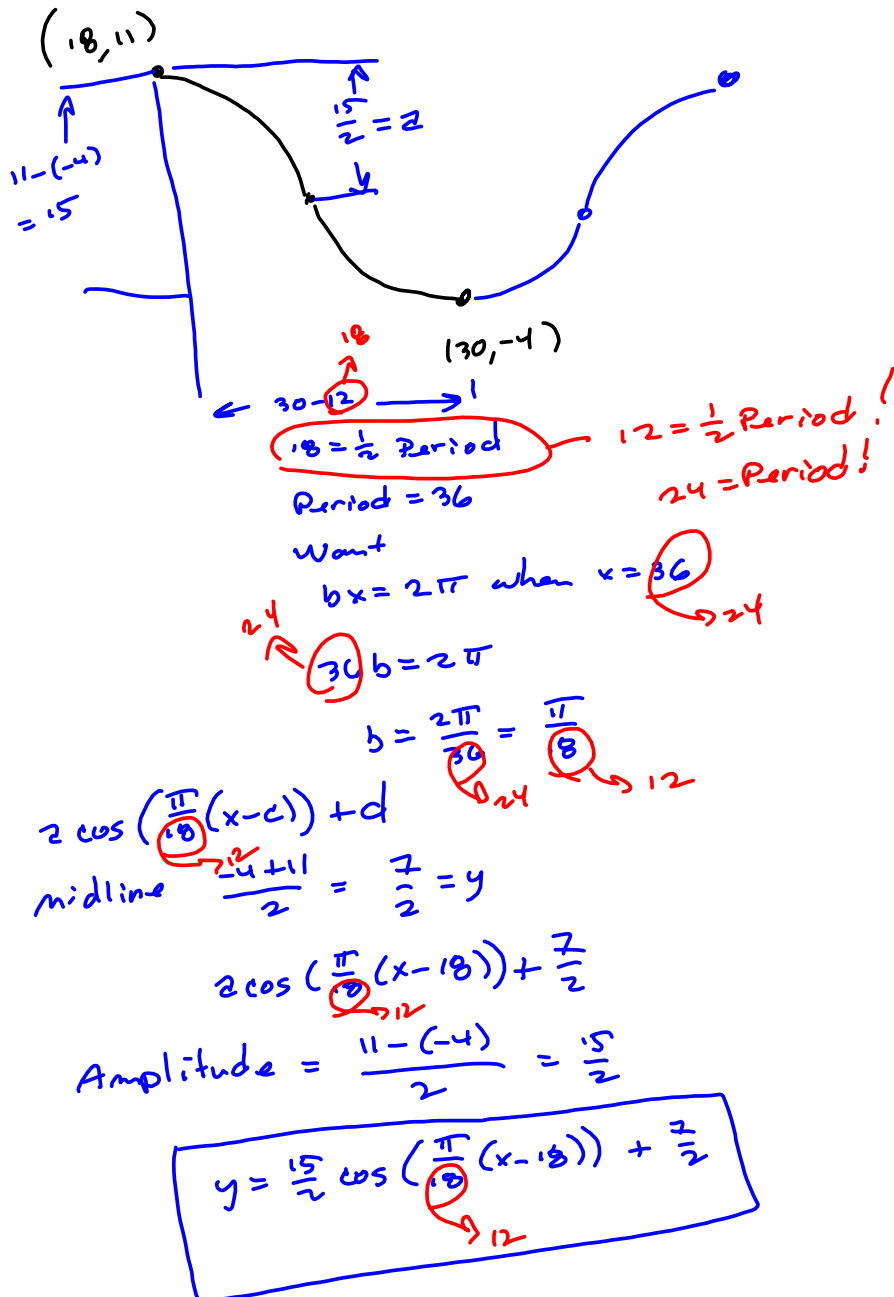 (18, 11)
15/2 = a
11-(-4)
= 15
(30, -4)
18
30-12
18 = 1/2 Period
12 = 1/2 Period!
24 = Period!
Period = 36
Want
bx = 2π when x = 36
24
24
36 b = 2π
b = 2π/36 = π/8
24
12
a cos(π/18 (x-c)) + d
12
midline (-4+11)/2 = 7/2 = y
a cos(π/18 (x-18)) + 7/2
12
Amplitude = (11-(-4))/2 = 15/2
y = 15/2 cos(π/18 (x-18)) + 7/2
12